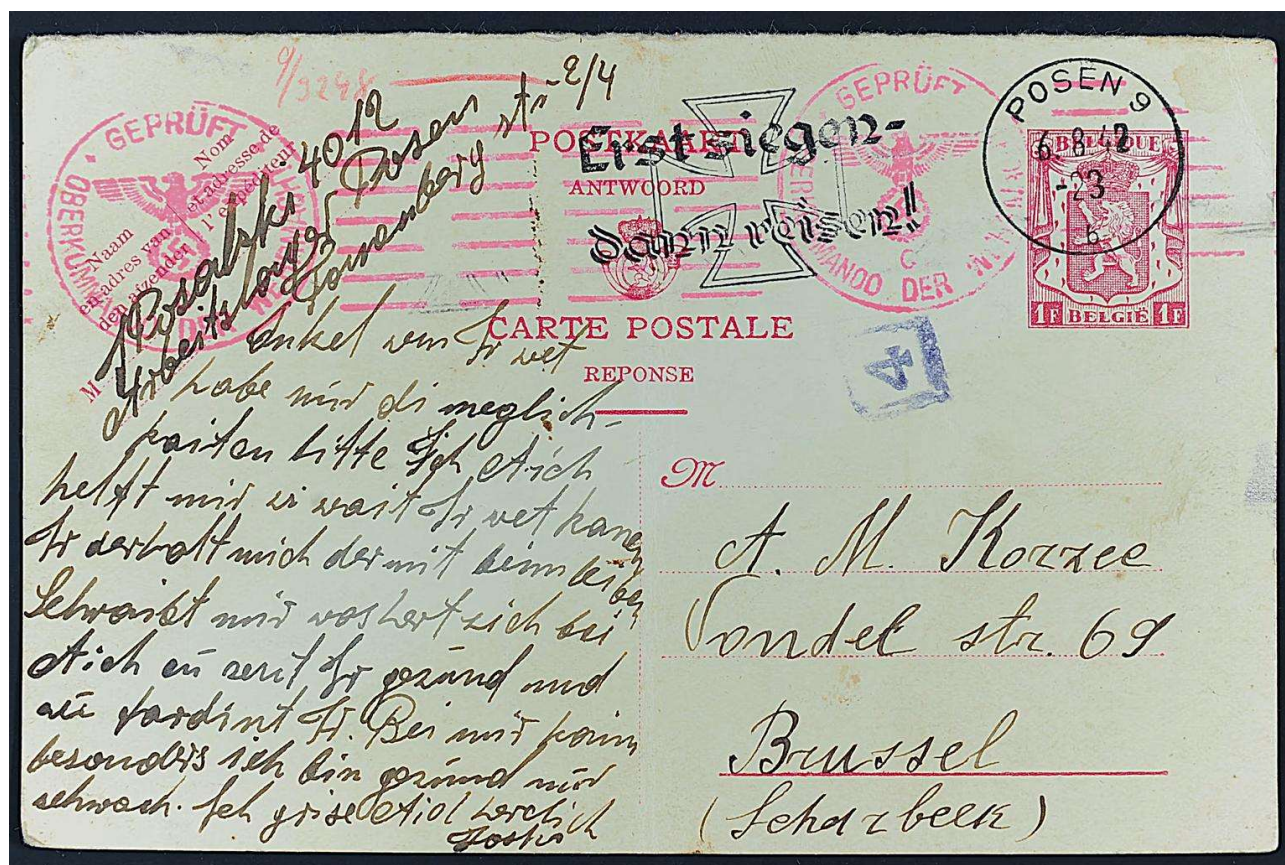 9/3298
GEPRÜFT
OBERKOMMANDO DER WEHRMACHT
Nom
et adresse de
l'expéditeur
Naam
en adres van
den afzender
M
Rosalzki 4012
Arbeitslager Posen
Tannenberg str 2/4
POSTKAART
ANTWOORD
Erst siegen-
dann reisen!
CARTE POSTALE
REPONSE
GEPRÜFT
OBERKOMMANDO DER WEHRMACHT
C
POSEN 9
6.8.42
-23
b
BELGIQUE
1F BELGIË 1F
4
onkel wen Ir wet
habe mir di meglich-
kaiten bitte Ich Aich
helft mir zi wait Ir wet kanen
Ir derhalt mich dermit beim leiben
Schraibt mir vos hert zich bei
Aich cu zeit Ir gezund und
cu fardint Ir. Bei mir kain
besonders ich bin gezund nur
schwach. Ich grise Aich herclich
M
A. M. Korzee
Vondel str. 69
Brussel
(Scharbeek)